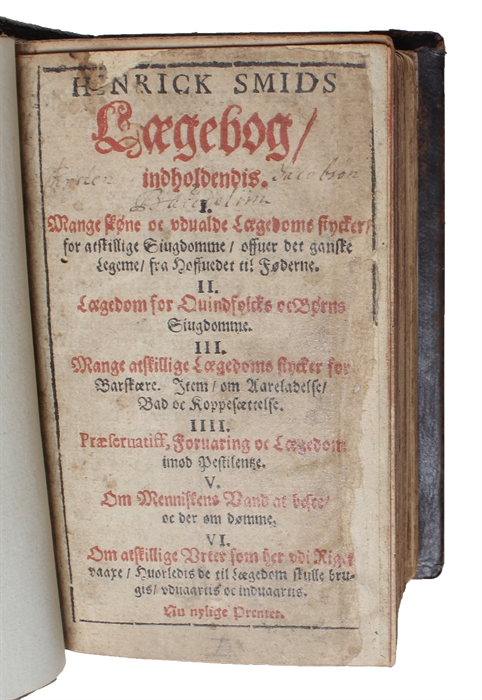 HENRICK SMIDS
Lægebog/
indholdendis.
Jacobsen
I.
Mange skøne oc vdualde Lægedoms stycker/
for atskillige Siugdomme/ offuer det ganske
Legeme/ fra Hoffuedet til Føderne.
II.
Lægedom for Quindfolcks oc Børns
Siugdomme.
III.
Mange atskillige Lægedoms stycker for
Barskære. Item/ om Aareladelse/
Bad oc Koppesættelse.
IIII.
Præseruatiff, Foruaring oc Lægedom
imod Pestilentze.
V.
Om Menniskens Vand at besee/
oc der om dømme.
VI.
Om atskillige Vrter som her vdi Riget
vaaxe/ Huorledis de til Lægedom skulle bru-
gis/ vduaartis oc induaartis.
Nu nylige Prentet.